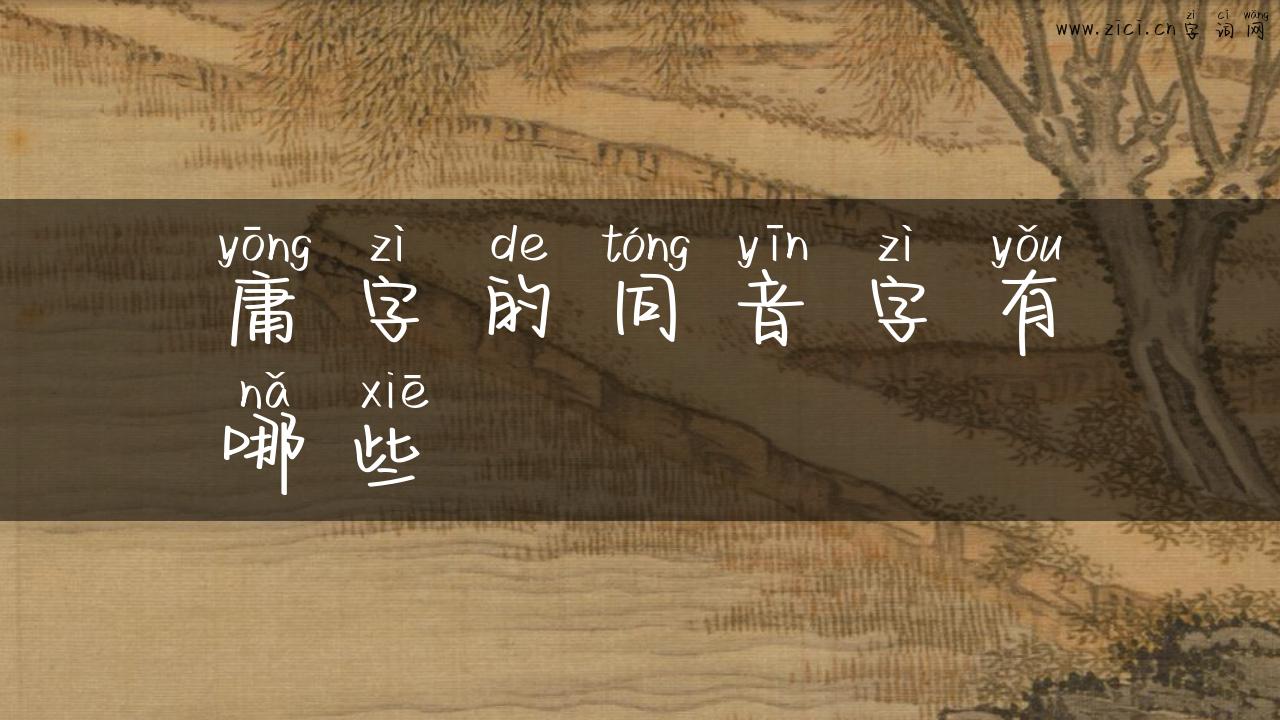 zì cí wǎng
www.zici.cn字词网
yōng zì de tóng yīn zì yǒu
庸字的同音字有
nǎ xiē
哪些